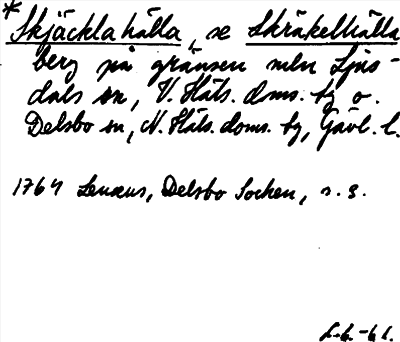 * Skjäcklahälla, se Skräkelhälla
berg på gränsen mln Ljus-
dals sn, V. Häls. doms. hg o.
Delsbo sn, N. Häls. doms. hg, Gävl. l.
1764 Lenæus, Delsbo Socken, s. 3.